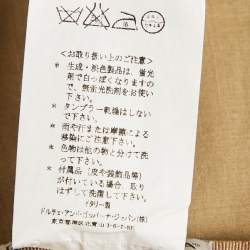 <お取り扱い上のご注意>
* 生成・淡色製品は、蛍光
剤で白っぽくなりますので
、無蛍光洗剤をお使い
下さい。
* タンブラー乾燥はしない
で下さい。
* 雨や汗または摩擦による
移染にご注意下さい。
* 色物は他の物と分けて洗
って下さい。
* 付属品(皮や装飾品等)
が付いている場合、取り
はずして洗濯して下さい。
イタリー製
ドルチェ・アンド・ガッバーナ・ジャパン(株)